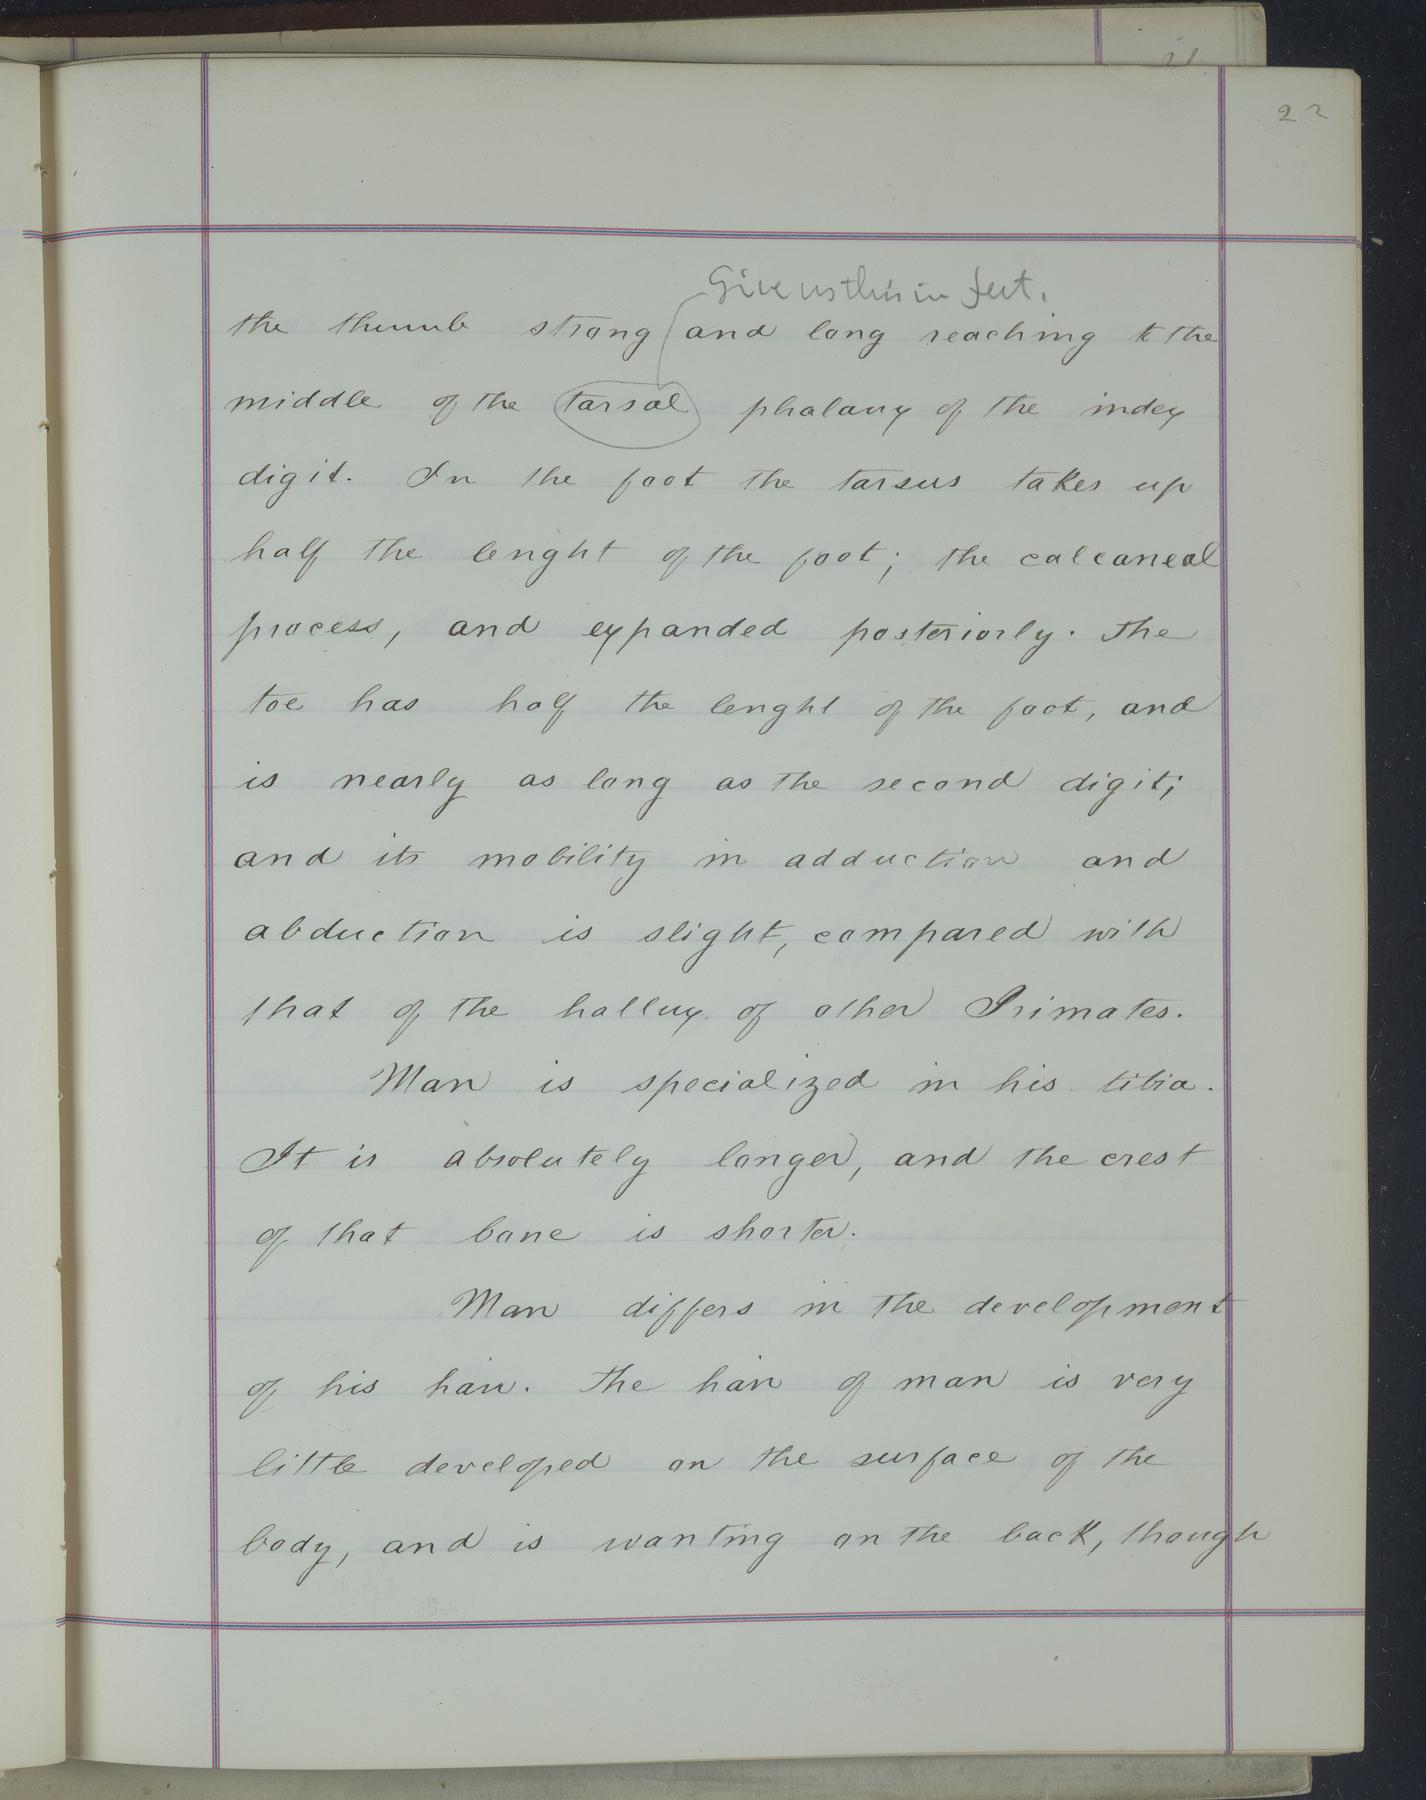 21
22
Give us this in feet.
the thumb strong and long reaching to the
middle of the tarsal phalanx of the index
digit. In the foot the tarsus takes up
half the lenght of the foot; the calcaneal
process, and expanded posteriorly. The
toe has half the lenght of the foot, and
is nearly as long as the second digit;
and its mobility in adduction and
abduction is slight, compared with
that of the hallux of other Primates.
Man is specialized in his tibia.
It is absolutely longer, and the crest
of that bone is shorter.
Man differs in the development
of his hair. The hair of man is very
little developed on the surface of the
body, and is wanting on the back, though